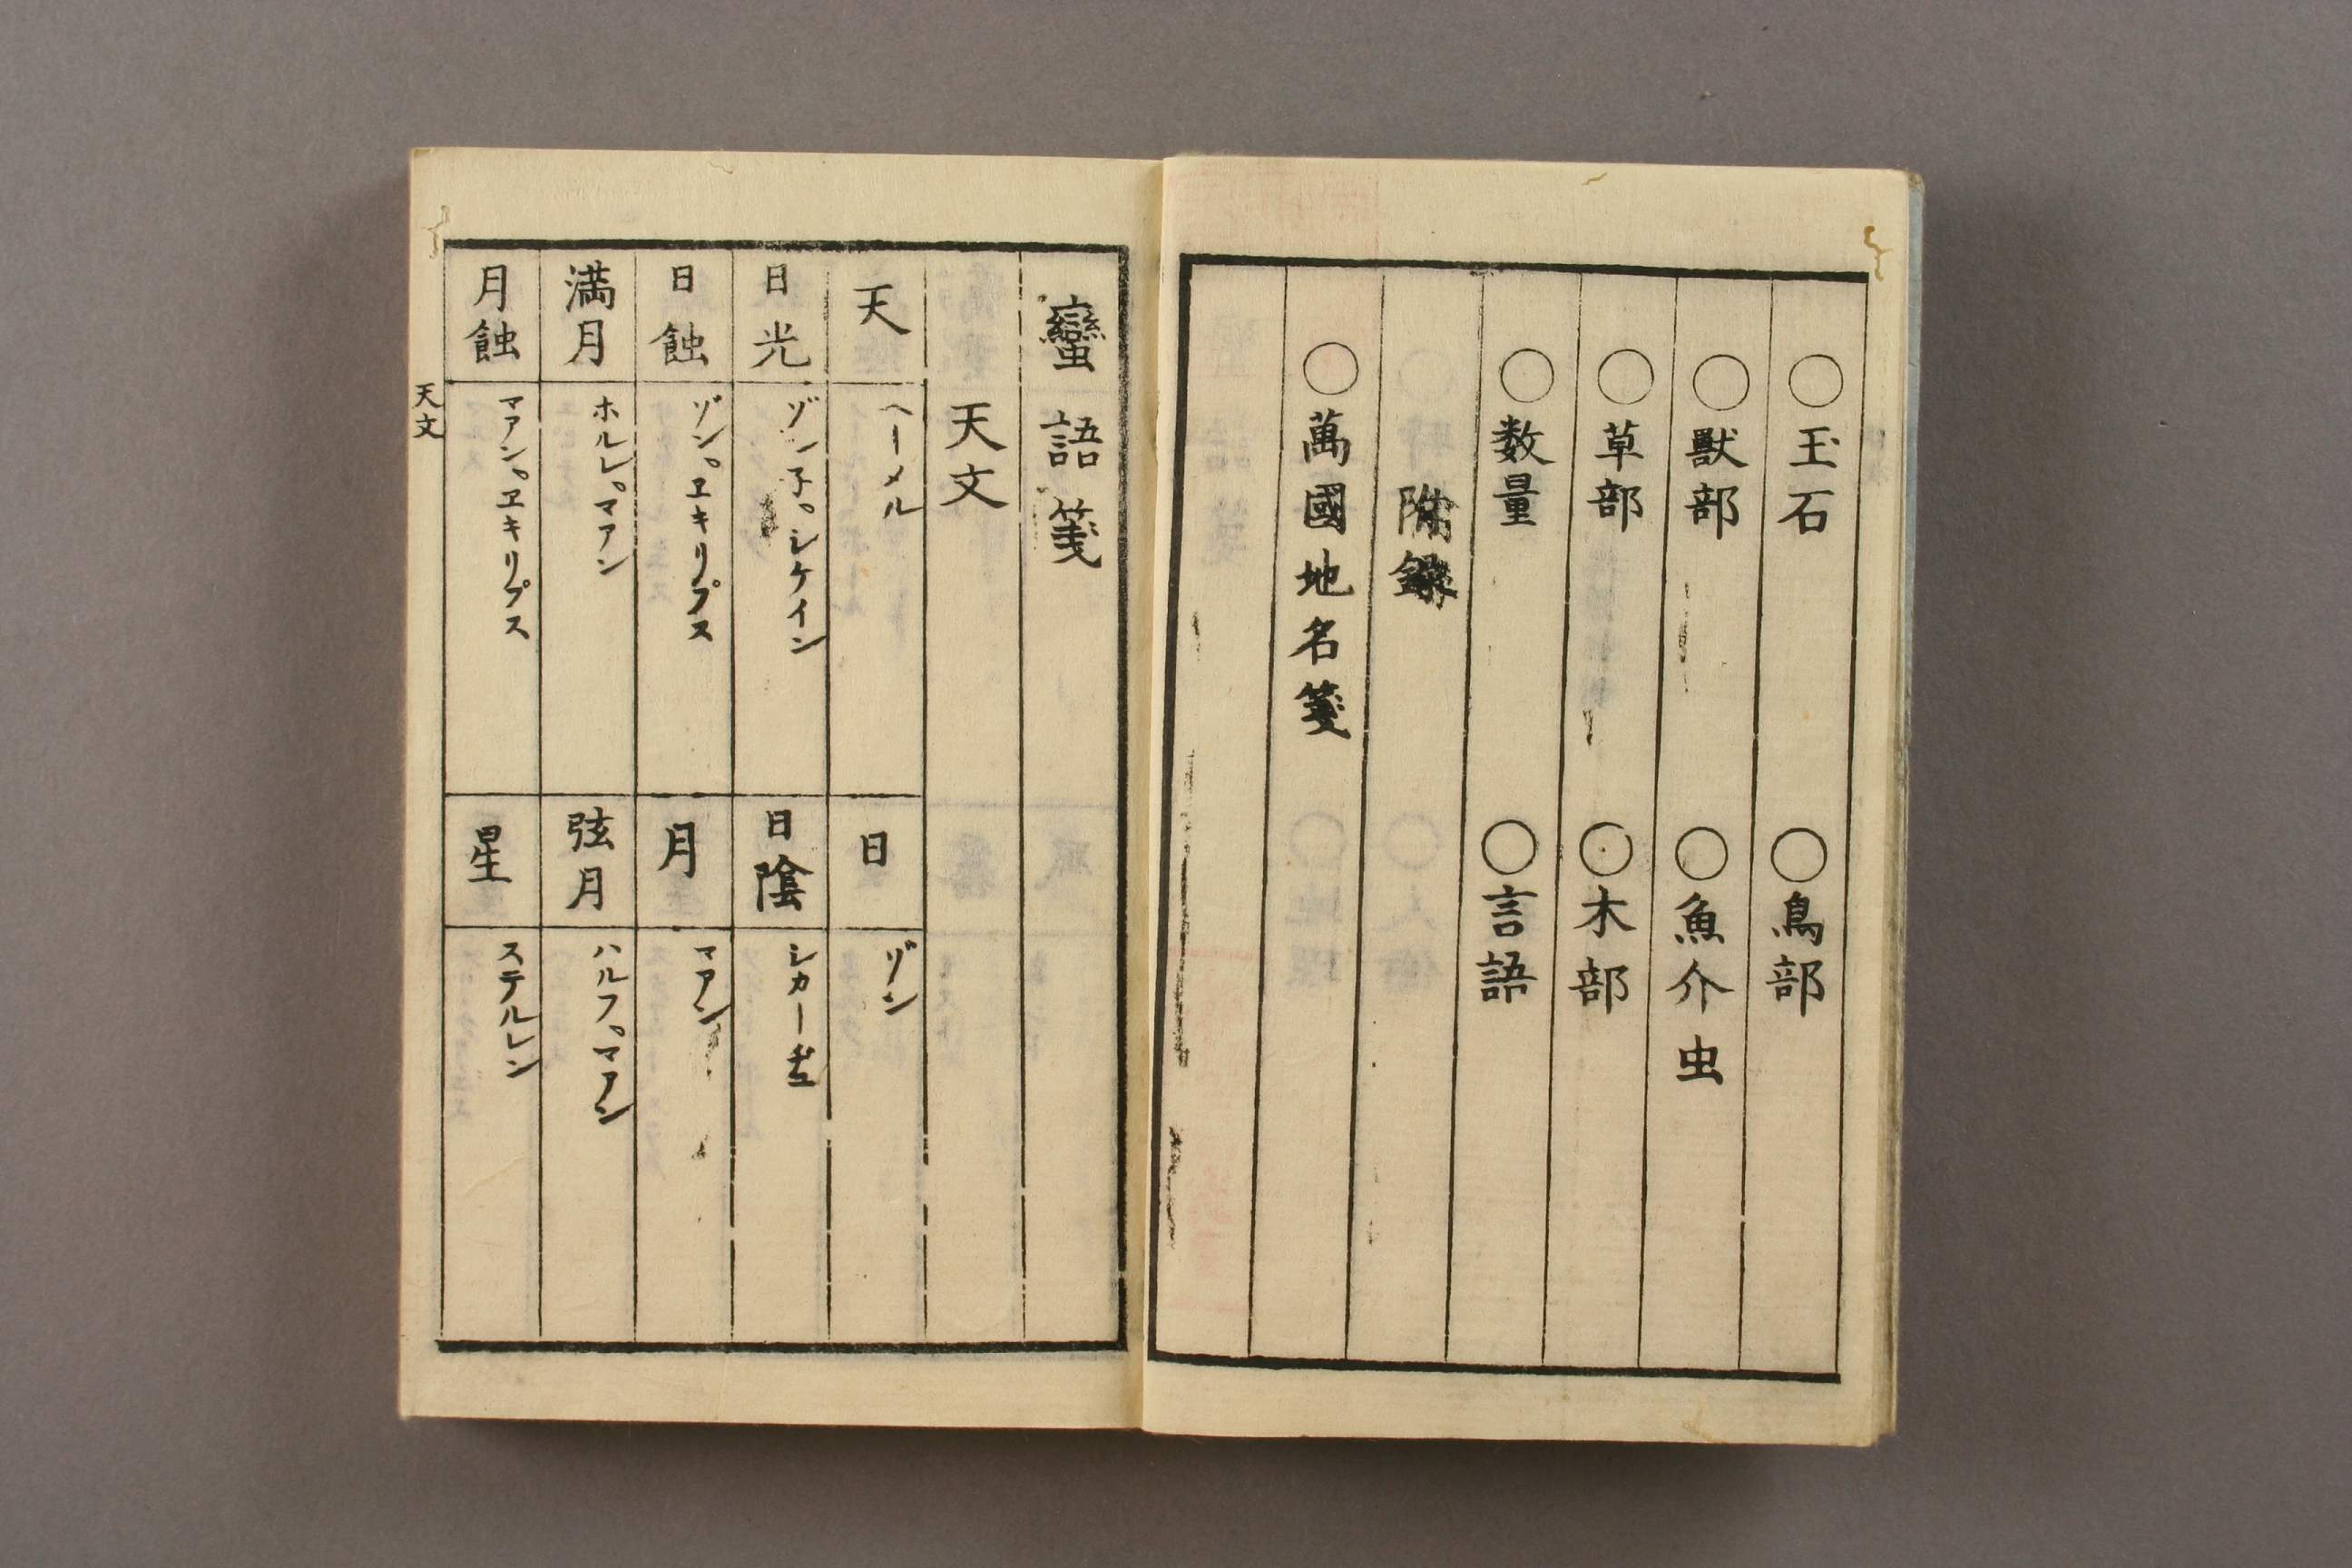 ○玉石 ○鳥部
○獣部 ○魚介虫
○草部 ○木部
○数量 ○言語
附録
○萬國地名箋
蠻語箋
天文
天 ヘーメル 日 ゾン
日光 ゾン子。シケイン 日陰 シカー
日蝕 ゾン。ヱキリプス 月 マアン
満月 ホルレ。マアン 弦月 ハルフ。マアン
月蝕 マアン。ヱキリプス 星 ステルレン
天文